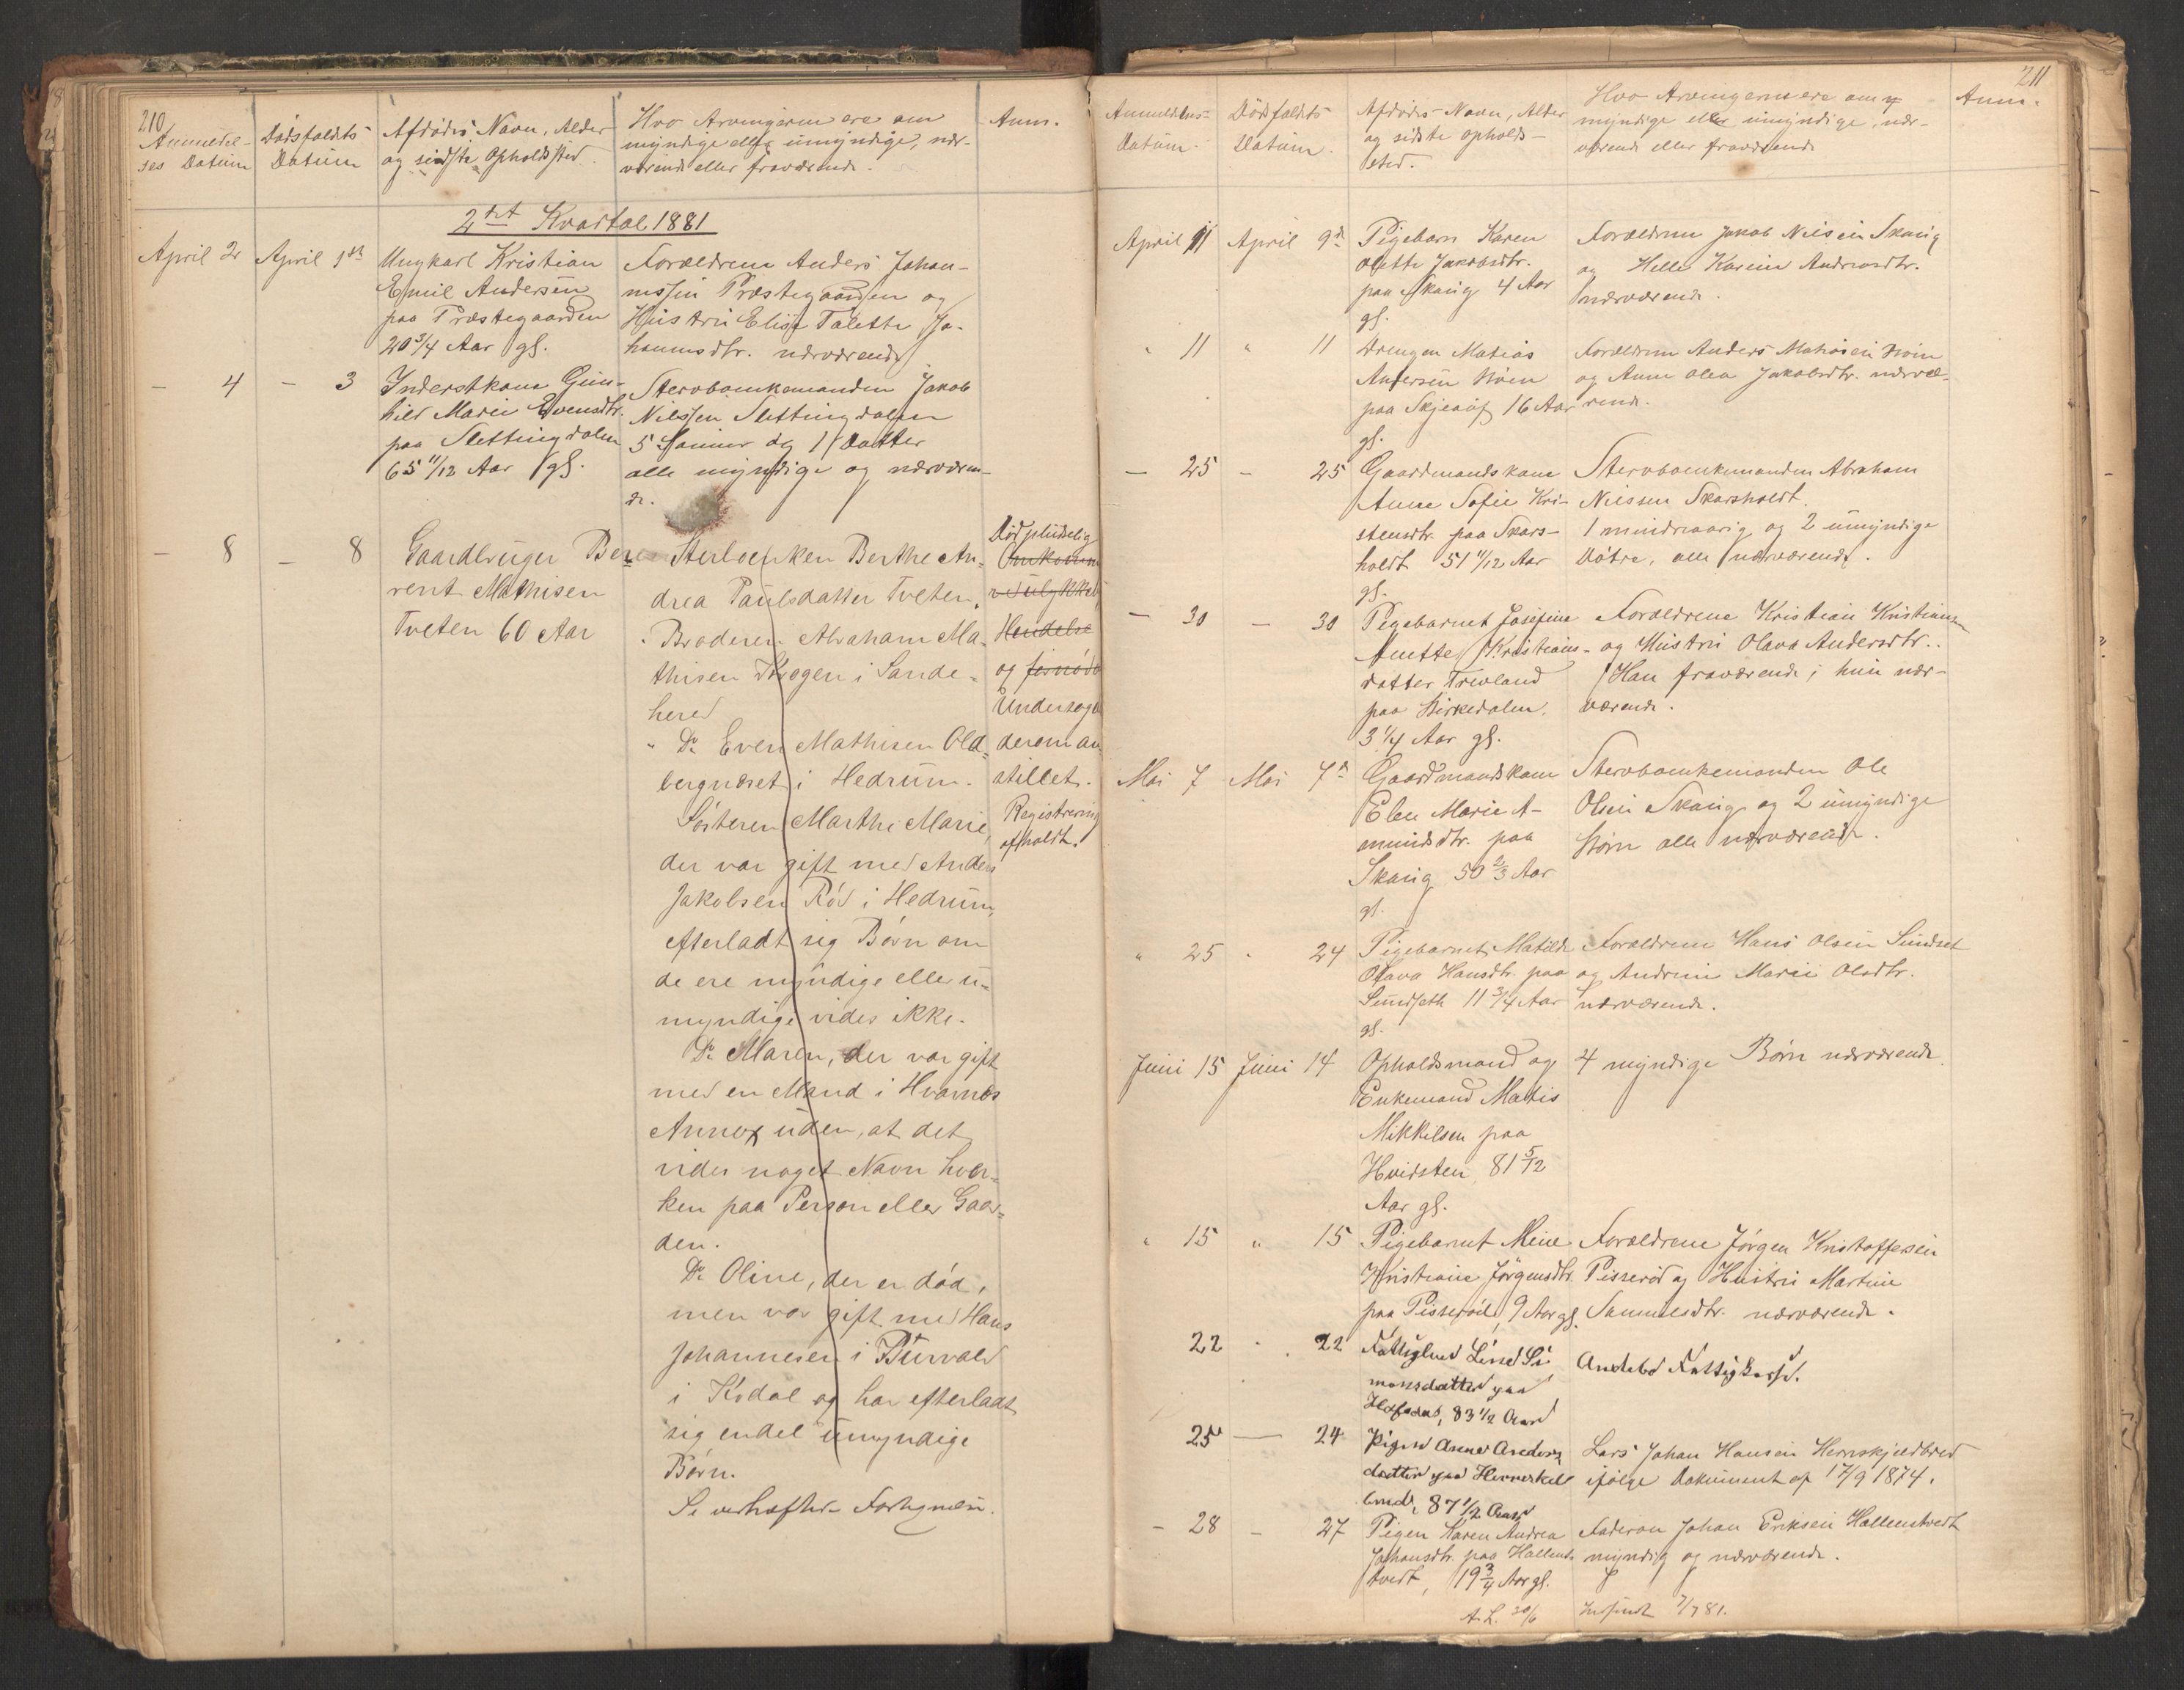 210
Anmeldel-
ses Datum
Dödsfaldets
Datum
Afdödes Navn, Alder
og sidste Opholdsted.
Hvo Arvingerne ere om
myndige eller umyndige, nær-
værende eller fraværende.
Anm.
2det Kvartal 1881
April 2 April 1ste
Ungkarl Kristian
Emil Andersen
paa Præstegaarden
20 3/4 Aar gl.
Forældrene Anders Johan-
nessen Præstegaarden og
Hustru Elise Talette Jo-
hannesdtr. nærværende
— 4 — 3
Inderstkone Gun-
hild Marie Evensdtr.
paa Slettingdalen
65 11/12 Aar gl.
Stervboenkemanden Jakob
Nilssen Slettingdalen
5 Sønner og 1 Datter
alle myndige og nærværen-
de.
— 8 — 8
Gaardbruger Be-
rent Mathisen
Tveten 60 Aar
Sterboenken Berthe An-
drea Paulsdatter Tveten.
Broderen Abraham Ma-
thisen Skogen i Sande-
hered
" Do Even Mathisen Old-
bergnæset i Hedrum.
Søsteren Marthe Marie,
der var gift med Anders
Jakobsen Rød i Hedrum,
efterladt sig Børn om
de ere myndige eller u-
myndige vides ikke.
Do Maren, der var gift
med en Mand i Hvarnes
Annex uden, at det
vides noget Navn hver-
ken paa Person eller Gaar-
den.
Do Oline, der er død,
men var gift med Hans
Johannesen i
i Kodal og har efterladt
sig endel umyndige
Børn.
Se vedhæftede Fortegnelse.
Död pludselig
Omkommen
ved ulykkelig
Hendelse
og fornøden
Undersøgelse
derom an-
stillet.
Registrering
afholdt.
211
Anmeldelses-
Datum.
Dödsfaldets
Datum.
Afdödes Navn, Alder
og sidste opholds-
sted.
Hvo Arvingerne ere om
myndige eller umyndige, nær-
værende eller fraværende
Anm.
April 11 April 9de
Pigebarn Karen
Olette Jakobsdtr.
paa Skaug 4 Aar
gl.
Forældrene Jakob Nilsen Skaug
og Helle Karine Andreasdtr.
nærværende.
" 11 " 11
Drengen Matias
Andersen Moen
paa Skjeau 16 Aar
gl.
Forældrene Anders Matiasen Moen
og Anne Olea Jakobsdtr. nærvæ-
rende.
— 25 — 25
Gaardmandskone
Anne Sofie Kri-
stensdtr. paa Skars-
holdt 51 11/12 Aar
gl.
Stervboenkemanden Abraham
Nilssen Skarsholdt.
1 mindreaarig og 2 umyndige
Døtre, alle nærværende.
— 30 — 30
Pigebarnet Josefine
Anette Kristians-
datter Trevland
paa Birkedalen.
3 1/4 Aar gl.
Forældrene Kristian Kristiansen
og Hustru Olava Andersdtr..
Han fraværende; hun nær-
værende.
Mai 7 Mai 7de
Gaardmandskone
Elen Marie A-
mundsdtr. paa
Skaug 50 2/3 Aar
gl.
Stervboenkemanden Ole
Olsen Skaug og 2 umyndige
Børn alle nærværende.
" 25 " 24
Pigebarnet Matilde
Olava Hansdtr. paa
Sundseth 11 3/4 Aar
gl.
Forældrene Hans Olsen Sundset
og Andrine Marie Olsdtr.
nærværende.
Juni 15 Juni 14
Opholdsmand og
Enkemand Matis
Mikkelsen paa
Hvidsten, 81 5/12
Aar gl.
4 myndige Børn nærværende
" 15 " 15
Pigebarnet Mine
Kristiane Jörgensdtr.
paa Pisserød, 9 Aar gl.
Forældrene Jörgen Kristoffersen
Pisserød og Hustru Martine
Samuelsdtr. nærværende.
22 " 22
Fattiglem Lene Si-
monsdatter paa
83 1/2 Aar
Andebo Fattigkasse.
25 — 24
Pigen Anne Anders-
datter paa Herreskel-
bred, 87 1/2 Aar
Lars Johan Hansen Herreskjelbred
ifølge Dokument af 17/9 1874.
— 28 — 27
Pigen Karen Andrea
Johansdtr. paa Hallens-
tvedt, 19 3/4 Aar gl.
Faderen Johan Eriksen Hallenstvedt
myndig og nærværende.
A.L. 30/6
Indsendt 7/7 81.